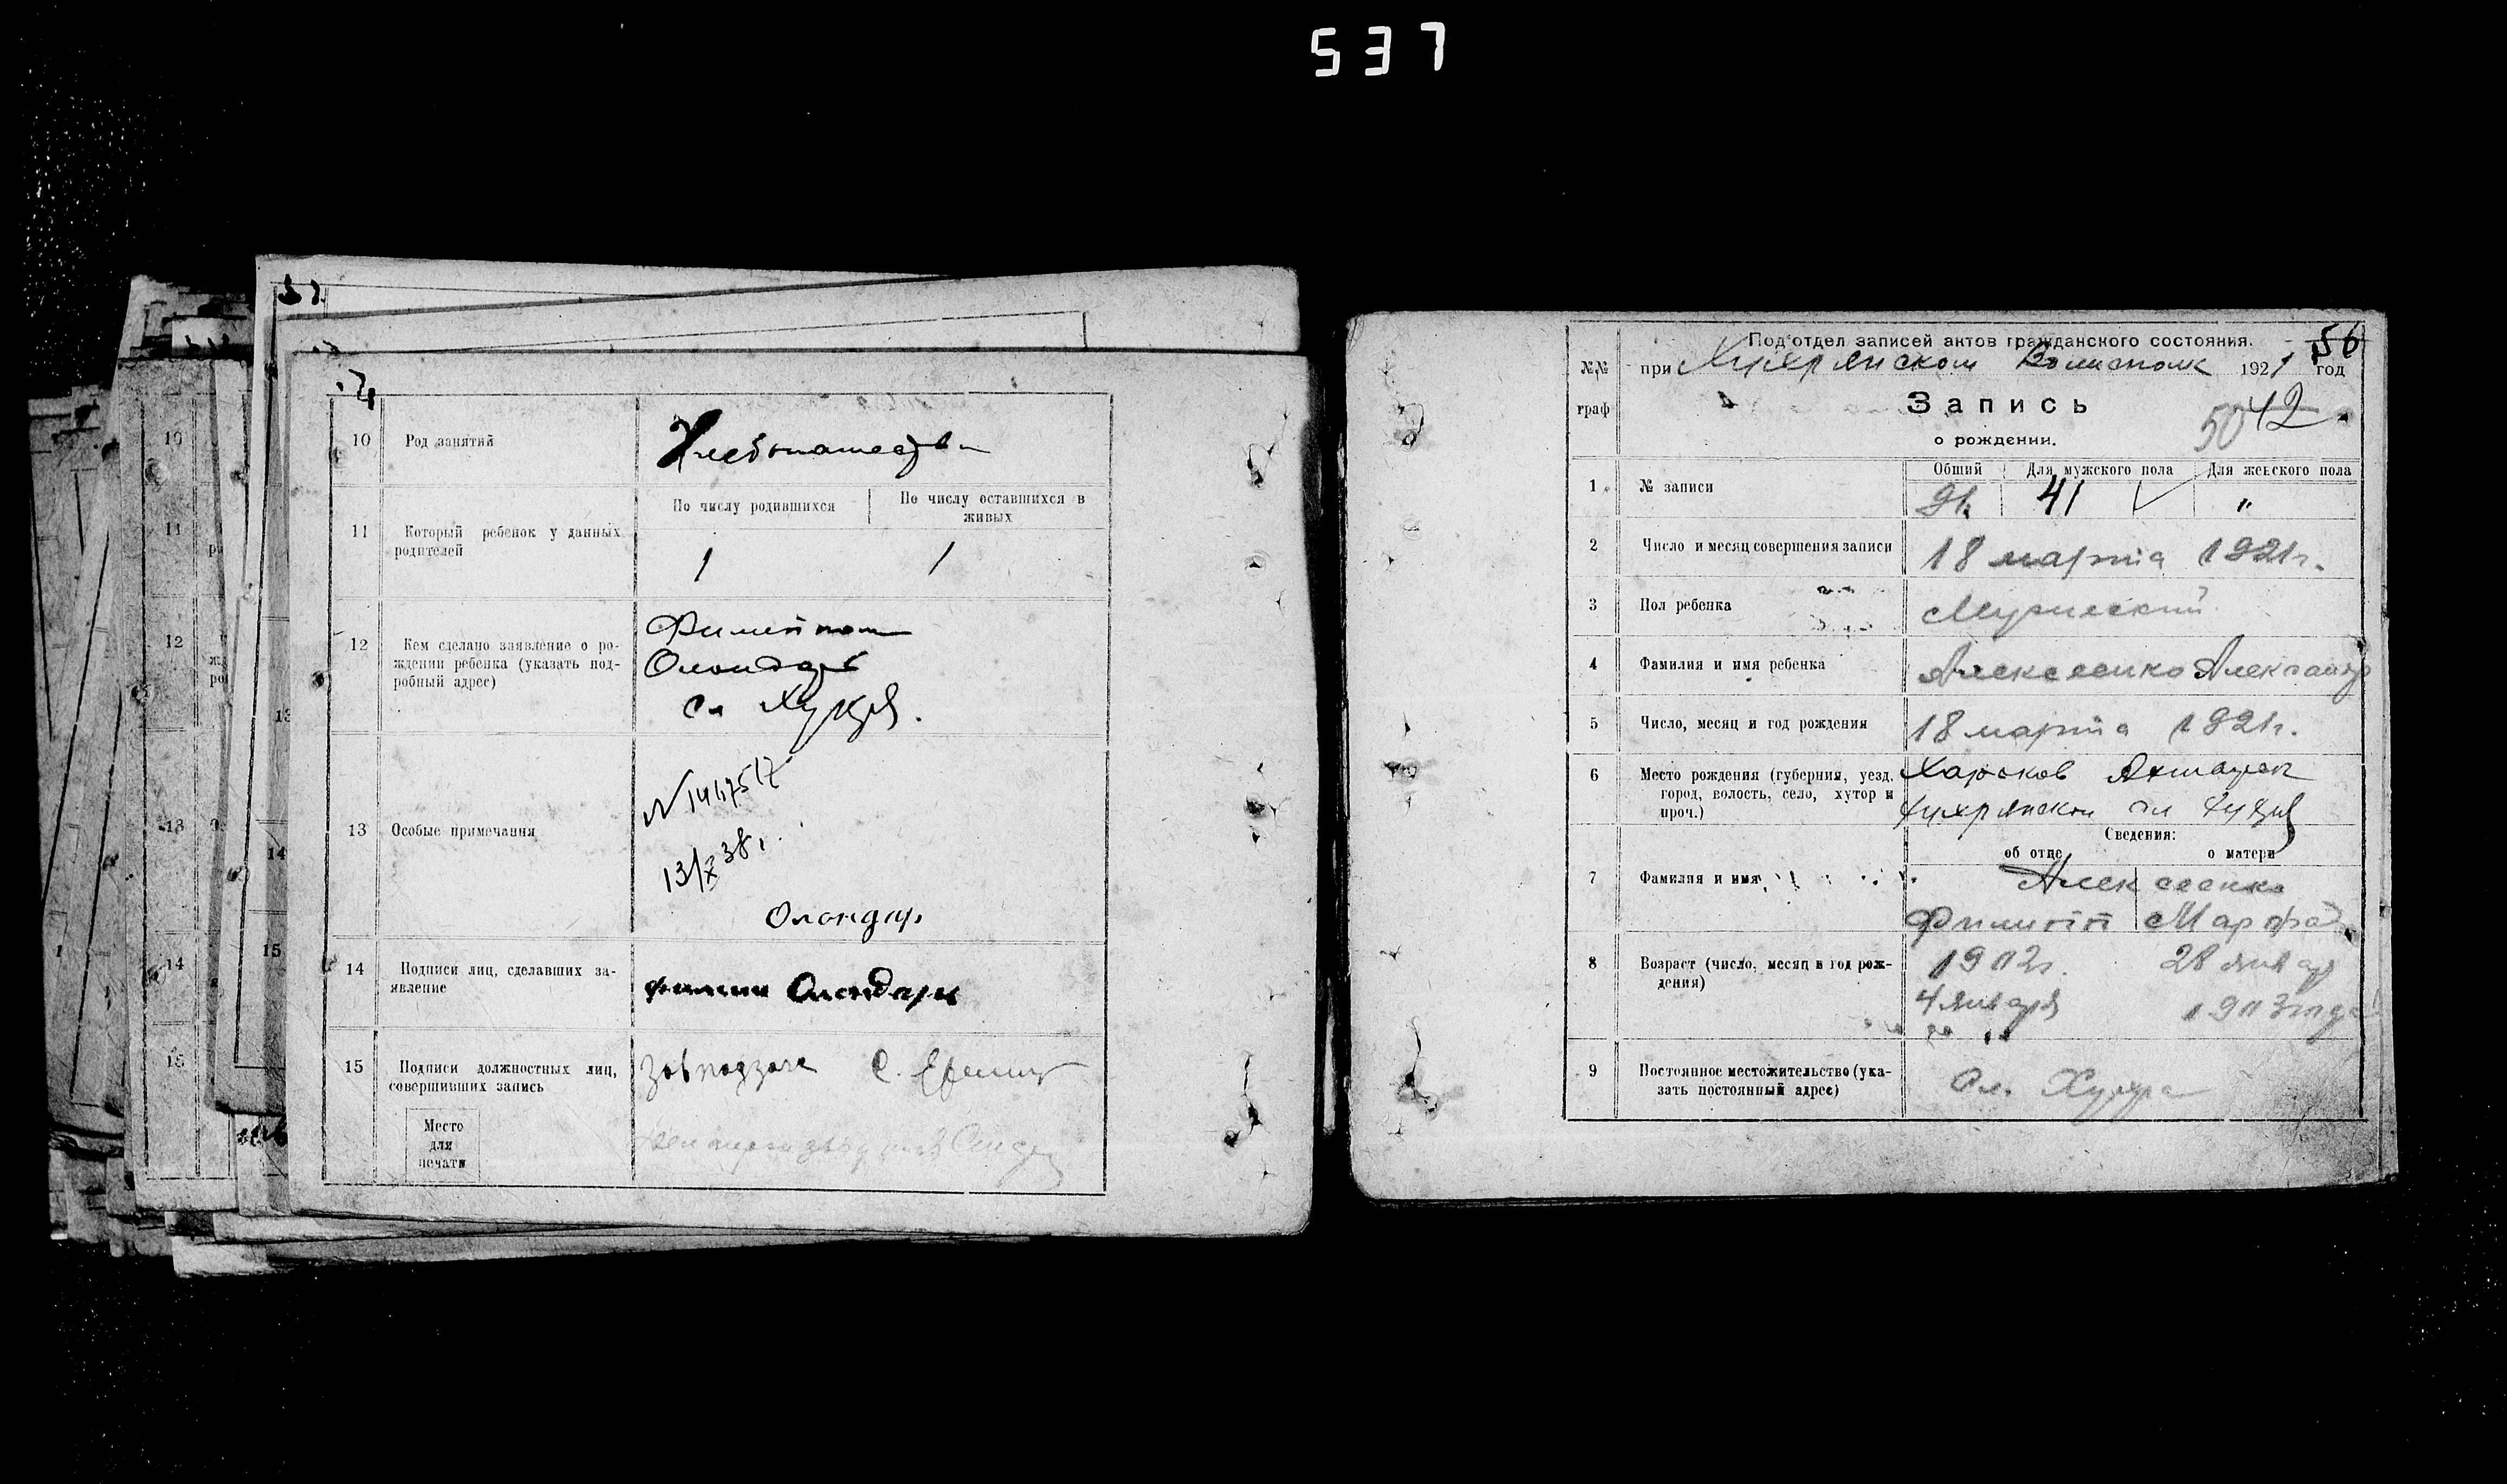 537
10 Род занятий Хлебопашество
11 Который ребенок у данных родителей
По числу родившихся
По числу оставшихся в живых
1 1
12 Кем сделано заявление о ро-
ждении ребенка (указать под-
робный адрес)
Филипом
Олондарь
сл Хухря.
13 Особые примечания
13/X 38г.
Олондар
14 Подписи лиц, сделавших за-
явление
Филип Олондарь
15 Подписи должностных лиц,
совершивших запись
Завподзаг С.
Место
для
печати
10
11
12
13
14
15
Под'отдел записей актов гражданского состояния.
56
№№ граф
при Хухрянском Волисполк 1921 год
Запись
50 42
о рождении.
1 № записи
Общий Для мужского пола Для женского пола
91. 41 "
2 Число и месяц совершения записи 18 марта 1921г.
3 Пол ребенка Мужеский
4 Фамилия и имя ребенка Алексеенко Александр
5 Число, месяц и год рождения 18 марта 1921г.
6 Место рождения (губерния, уезд,
город, волость, село, хутор и
проч.)
Харьков Ахтырск
Хухрянской сл Хухря
Сведения:
об отце о матери
7 Фамилия и имя Алексеенко
Филипп Марфа
8 Возраст (число, месяц и год рож-
дения)
1902г. 28 январ
4 января 1903 года
9 Постоянное местожительство (ука-
зать постоянный адрес)
Сл. Хухра